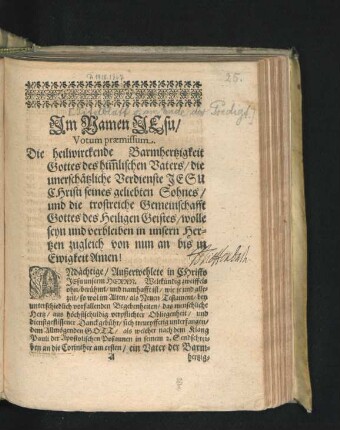 25.
Im Namen JEsu/
Votum præmissum.
Die heilwirckende Barmhertzigkeit
Gottes des himlischen Vaters/ die
unerschätzliche Verdienste JESU
CHristi seines geliebten Sohnes/
und die trostreiche Gemeinschafft
Gottes des Heiligen Geistes/ wolle
seyn und verbleiben in unsern Her-
tzen zugleich von nun an bis in
Ewigkeit Amen!
ANdächtige/ Außerwehlete in Christo
Jesu unserm HERRN. Weltkündig zweiffels
ohn/ berühmt/ und namhafft ist/ wie je und alle-
zeit/ so wol im Alten/ als Neuen Testament/ bey
unterschiedlich vorfallenden Begebenheiten/ das menschliche
Hertz/ aus höchstschuldig verpflichter Obliegenheit/ und
dienstgeflissener Danckgebühr/ sich unterpfftig unterfangen/
dem Allmögenden GOTT/ als welcher nach dem Klang
Pauli der Apostolischen Posaunen in seinem 2. Sendschrei-
ben an die Corinther am ersten/ ein Vater der Barm-
a
hertzig-